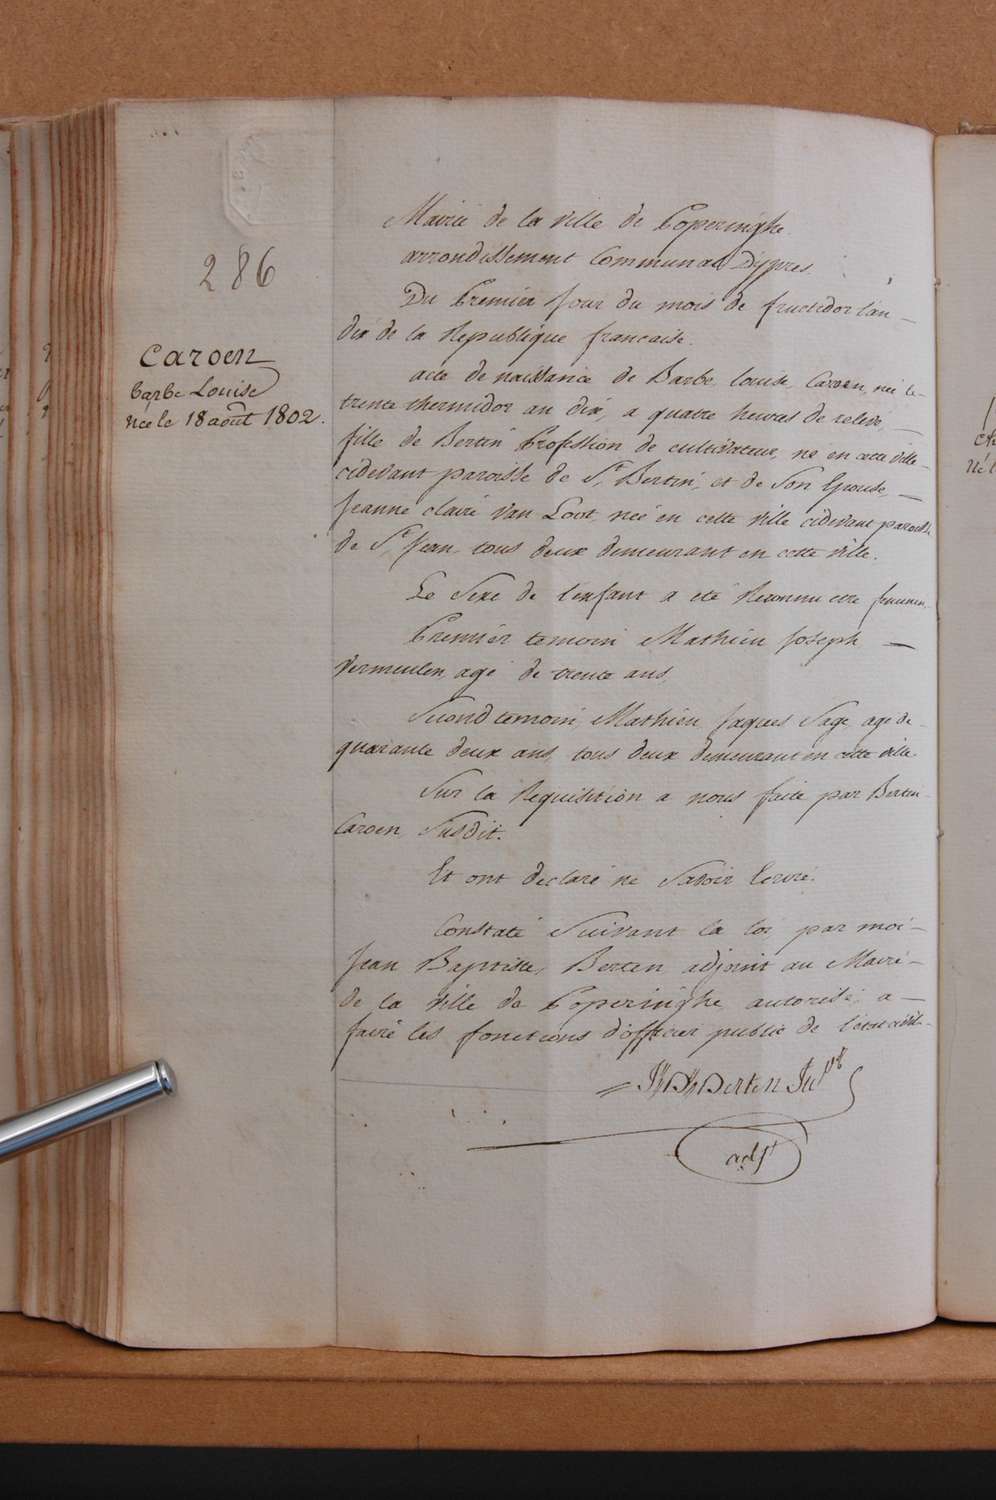 286
Caroen
barbe Louise
née le 18 août 1802.
Mairie de la ville de Poperinghe
arrondissement Communal Dypres.
Du Premier Jour du mois de fructidor l'an
dix de la Republique francaise.
acte de naissance de Barbe louise Caroen, née le
trente thermidor an dix, a quatre heures de relevé,
fille de Bertin Profession de cultivateur, né en cette ville
cidevant paroisse de St Bertin, et de Son Epouse
Jeanne claire Van Loot, née en cette ville cidevant paroisse
de St Jean, tous deux demeurant en cette ville.
Le Sexe de l'enfant a eté Reconnu etre feminin.
Premier temoin Mathieu Joseph
Vermeulen, agé de trente ans,
Second temoin Mathieu Jaques Sage, agé de
quarante deux ans, tous deux demeurant en cette ville
Sur la Requisition a nous faite par Bertin
Caroen, Susdit.
Et ont declaré ne Savoir Ecrire.
Constaté Suivant la loi, par moi
Jean Baptiste Berten adjoint au Maire
de la Ville de Poperinghe, autorisé, a
faire les fonctions d'officier public de l'état civil
Berten
adjt